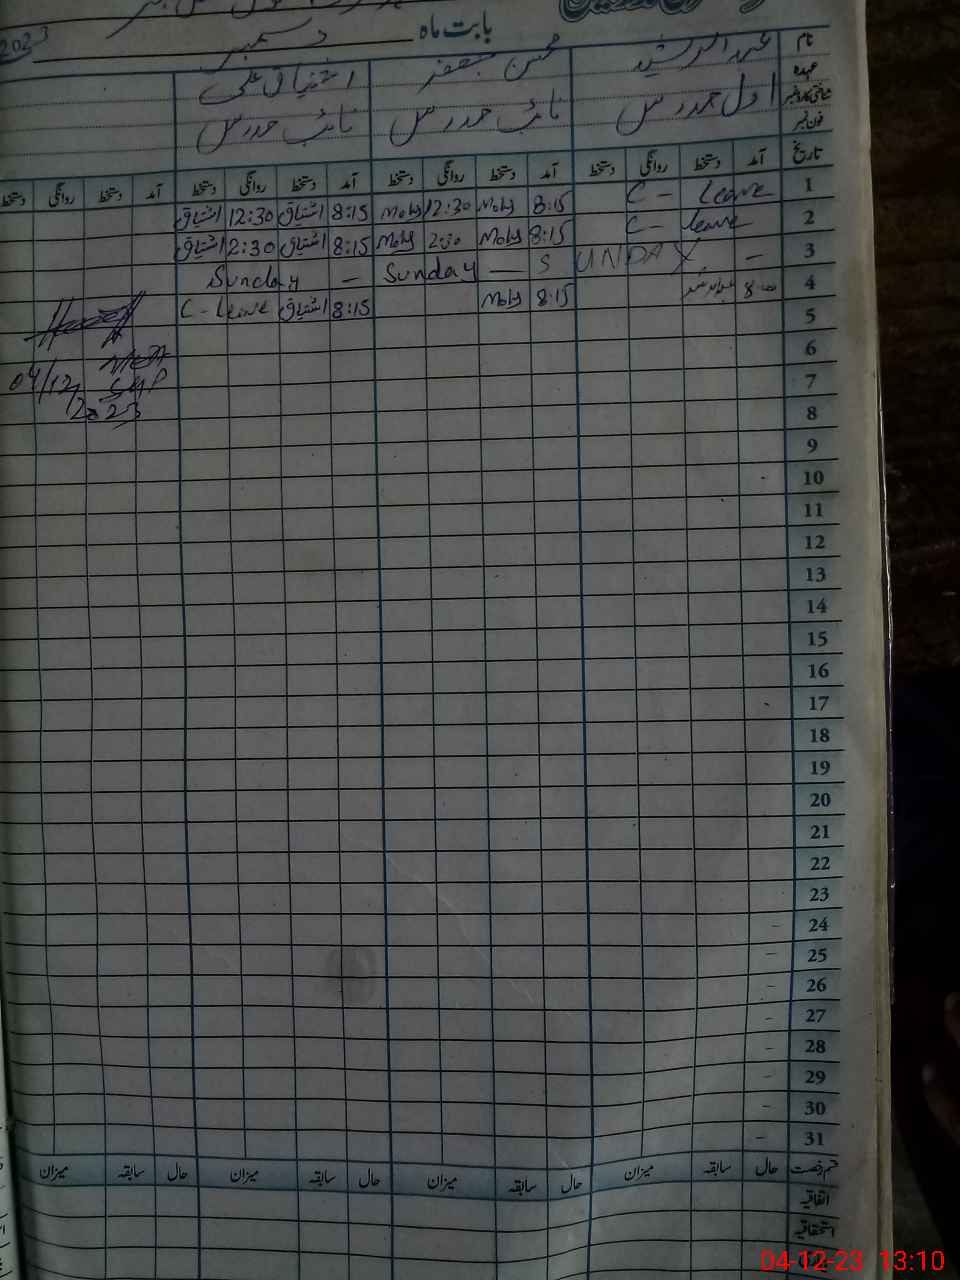 2023
بابت ماہ دسمبر
نام عبدالرشید محسن جعفر اشتیاق علی
عہدہ
شناختی کارڈ نمبر اول مدرس نائب مدرس نائب مدرس
فون نمبر
تاریخ آمد دستخط روانگی دستخط آمد دستخط روانگی دستخط آمد دستخط روانگی دستخط آمد دستخط روانگی دستخط
1 C - Leave 8:15 12:30 8:15 اشتیاق 12:30 اشتیاق
2 C - leave 8:15 8:15 اشتیاق 12:30 اشتیاق
3 — SUNDAY — Sunday — Sunday
4 8:00 8:15 8:15 اشتیاق C - Leave
5
6
7
04/12/2023
8
9
10
11
12
13
14
15
16
17
18
19
20
21
22
23
24 -
25 -
26 -
27 -
28 -
29 -
30 -
31 -
قسم رخصت حال سابقہ میزان حال سابقہ میزان حال سابقہ میزان حال سابقہ میزان
اتفاقیہ
استحقاقیہ
04-12-23 13:10